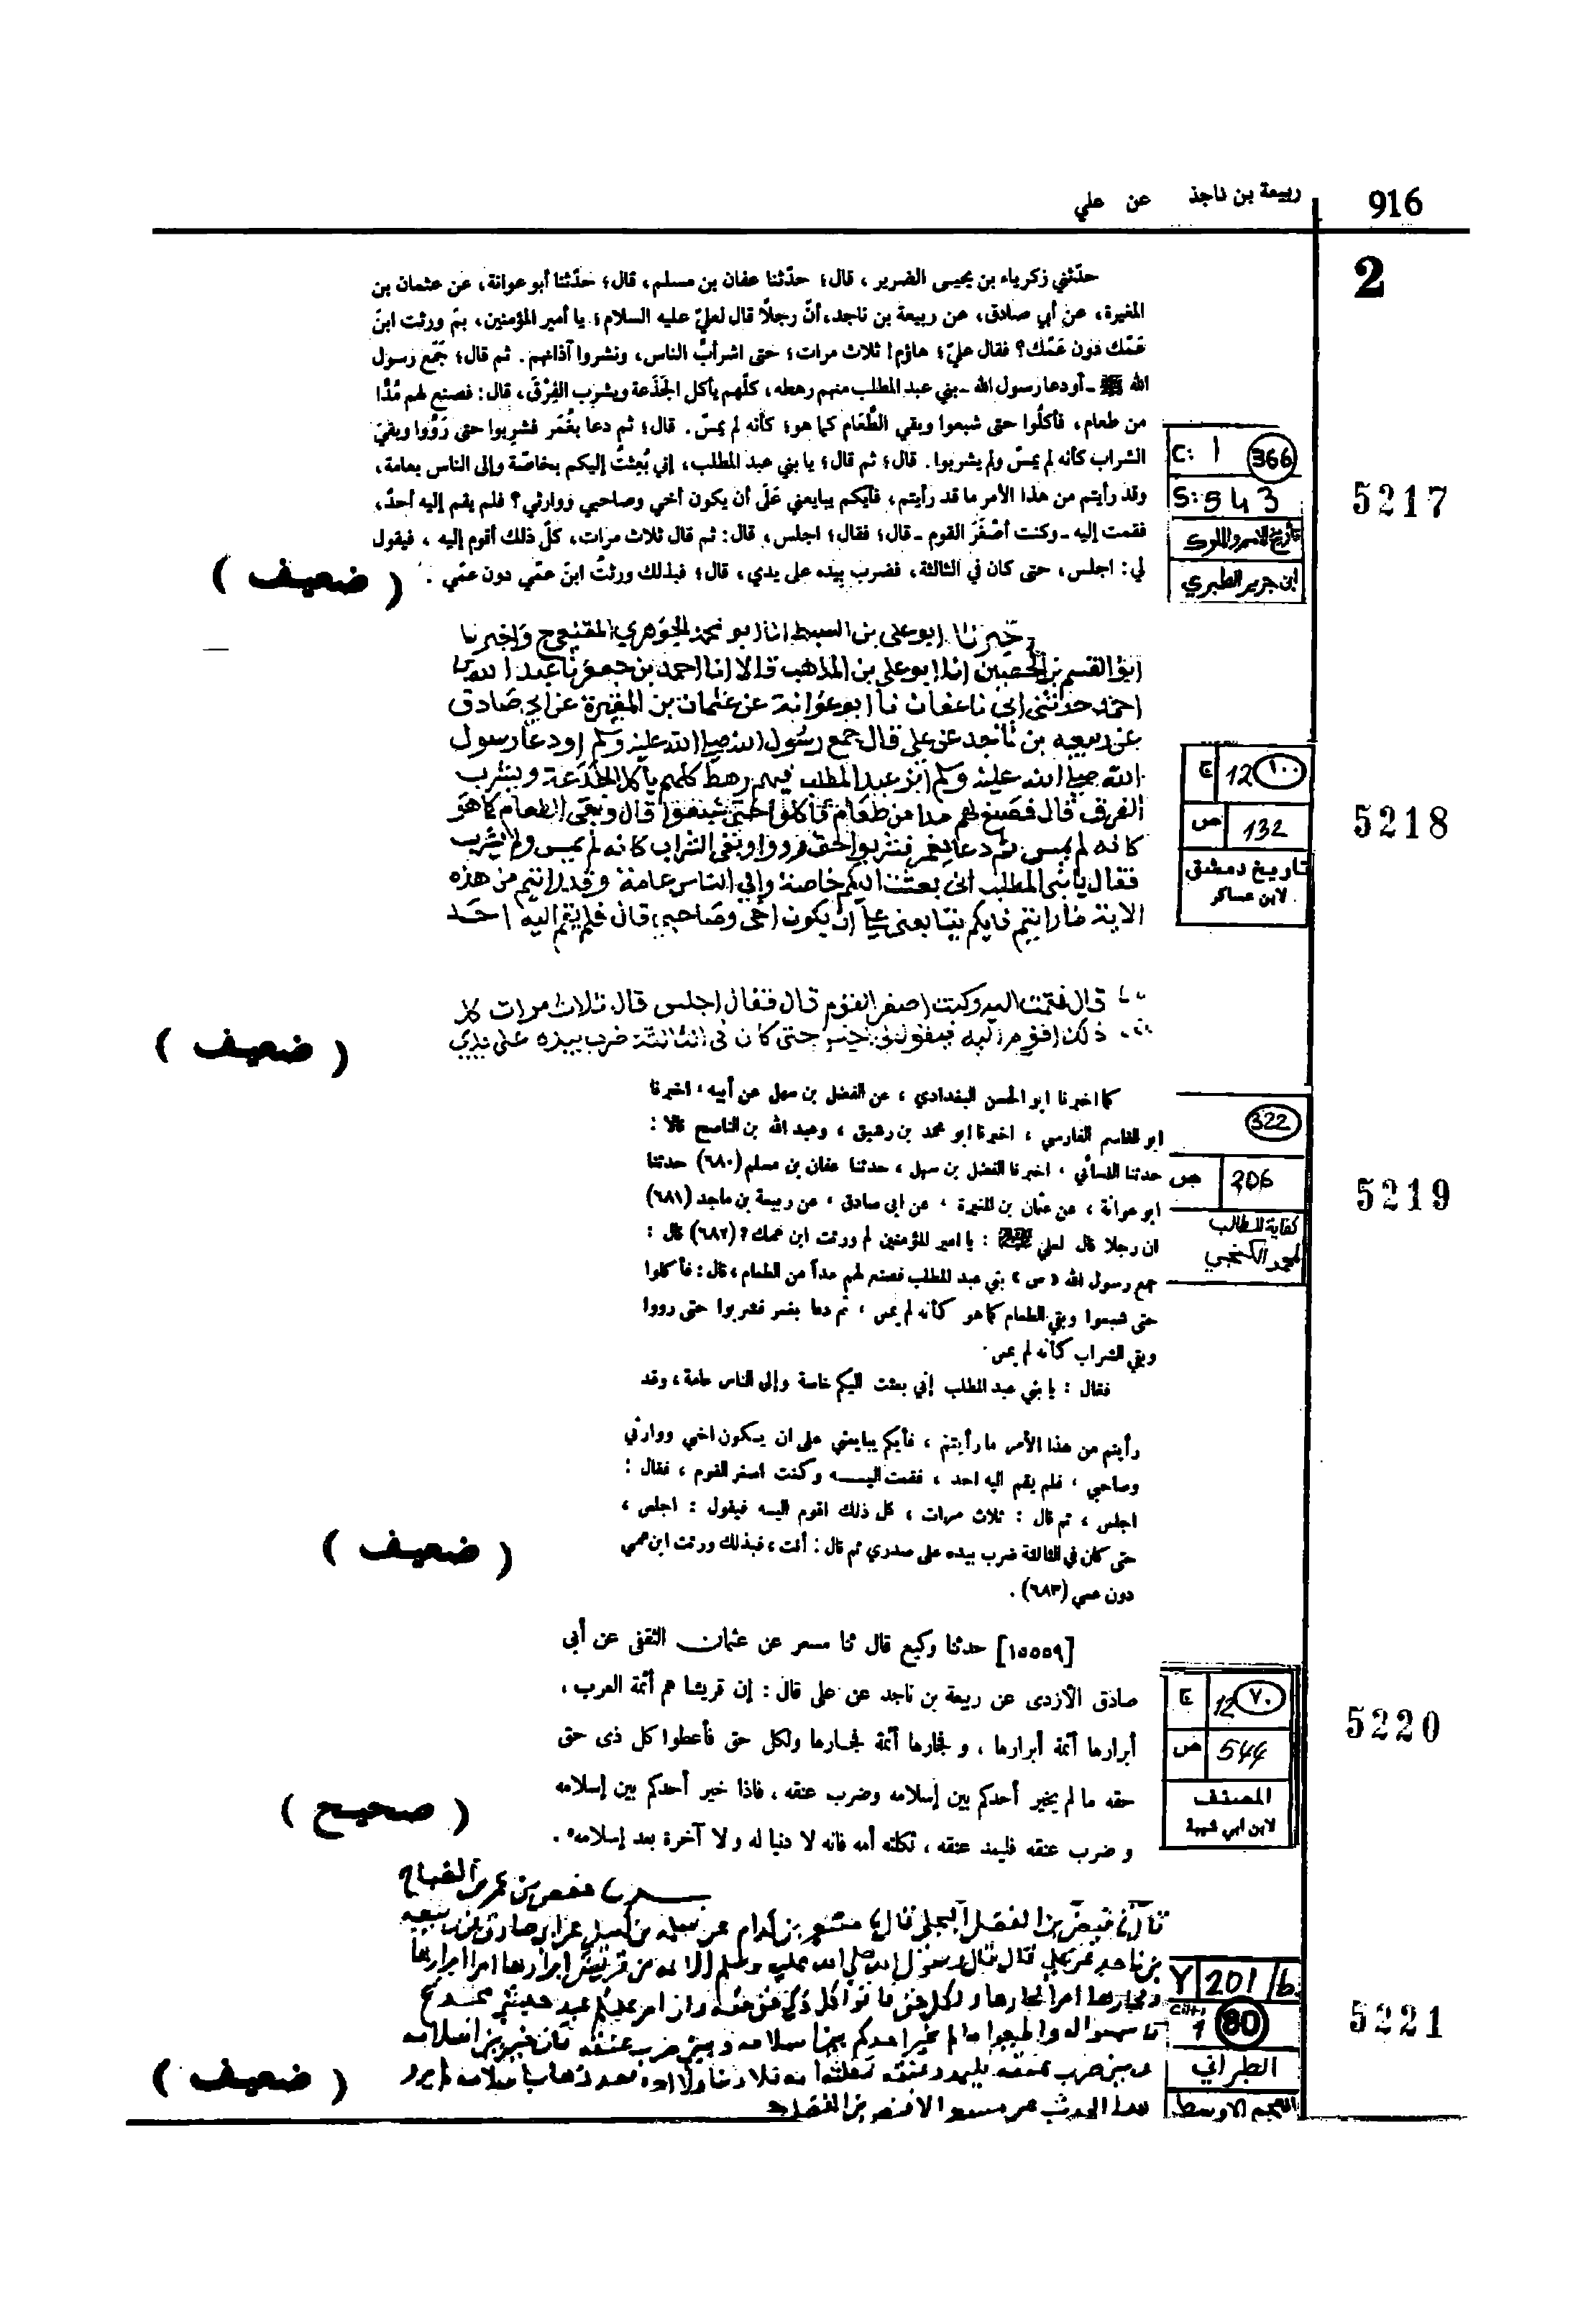 916
ربيعة بن ناجذ عن علي
2
حدّثني زكرياء بن يحيى الضرير، قال: حدّثنا عفان بن مسلم، قال: حدّثنا أبو عوانة، عن عثمان بن
المغيرة، عن أبي صادق، عن ربيعة بن ناجد، أنّ رجلًا قال لعليّ عليه السلام: يا أمير المؤمنين، بمَ ورثت ابنَ
عمّك دون عمّك؟ فقال عليّ: هاؤم! ثلاث مرات؛ حتى اشرأبّ الناس، ونشروا آذانهم. ثم قال: جَمّع رسول
الله ﷺ ـ أو دعا رسول الله ـ بني عبد المطلب منهم رهطه، كلّهم يأكل الجَذَعة ويشرب الفِرْق، قال: فصنع لهم مُدًّا
من طعام، فأكلُوا حتى شبعوا وبقي الطَّعَام كما هو؛ كأنه لم يمسّ. قال: ثم دعا بغُمَر فشربوا حتى رَوُوا وبقيَ
الشراب كأنه لم يمسّ ولم يشربوا. قال: ثم قال: يا بني عبد المطلب، إني بُعِثتُ إليكم بخاصّة وإلى الناس بعامة،
وقد رأيتم من هذا الأمر ما قد رأيتم، فأيّكم يبايعني عَلَى أن يكون أخي وصاحبي ووارثي؟ فلم يقم إليه أحدٌ،
فقمت إليه ـ وكنت أصْغَرَ القوم ـ قال: فقال: اجلس، قال: ثم قال ثلاث مرات، كلّ ذلك أقوم إليه، فيقول
لي: اجلس، حتى كان في الثالثة، فضرب بيَده على يدي، قال: فبذلك ورثتُ ابنَ عمّي دون عمّي.
( ضعيف )
C: 1 366
S: 543
تأريخ الامم والملوك
ابن جرير الطبري
5217
اخبرنا ابو على بن السبط انا ابو محمد الجوهري ح واخبرنا
ابو القسم بن الحصين انا ابو على بن المذهب قالا انا احمد بن جعفر نا عبد الله بن
احمد حدثنى ابى نا عفان نا ابو عوانة عن عثمان بن المغيرة عن ابى صادق
عن ربيعه بن ناجد عن على قال جمع رسول الله صلى الله عليه وسلم او دعا رسول
الله صلى الله عليه وسلم بنى عبد المطلب فيهم رهط كلهم يأكل الجذعة ويشرب
الفرق قال فصنع لهم مدا من طعام فأكلوا حتى شبعوا قال وبقى الطعام كما هو
كانه لم يمس ثم دعا بغمر فشربوا حتى رووا وبقى الشراب كانه لم يمس ولم يشرب
فقال يا بنى المطلب انى بعثت اليكم خاصة والى الناس عامة وقد رايتم من هذه
الاية ما رايتم فايكم يبايعنى على ان يكون اخى وصاحبى قال فلم يقم اليه احد
قال فقمت اليه وكنت اصغر القوم قال فقال اجلس قال ثلاث مرات كل
ذلك اقوم اليه فيقول لى اجلس حتى كان فى الثالثة ضرب بيده على يدي
( ضعيف )
ج 12 ١٠٠
ص 132
تاريخ دمشق
لابن عساكر
5218
كما اخبرنا ابو الحسن البغدادي، عن الفضل بن سهل عن أبيه، اخبرنا
ابو القاسم الفارسي، اخبرنا ابو محمد بن رشيق، وعبد الله بن الناصح قالا:
حدثنا النسائي، اخبرنا الفضل بن سهل، حدثنا عفان بن مسلم (٦٨٠) حدثنا
ابو عوانة، عن عثمان بن المغيرة، عن ابى صادق، عن ربيعة بن ماجد (٦٨١)
ان رجلا قال لعلي : يا امير المؤمنين لم ورثت ابن عمك؟ (٦٨٢) قال:
جمع رسول الله «ص» بني عبد المطلب فصنع لهم مداً من الطعام، قال: فأكلوا
حتى شبعوا وبقي الطعام كما هو كأنه لم يمس، ثم دعا بغمر فشربوا حتى رووا
وبقي الشراب كأنه لم يمس.
فقال: يا بني عبد المطلب إني بعثت اليكم خاصة وإلى الناس عامة، وقد
رأيتم من هذا الأمر ما رأيتم، فأيكم يبايعني على ان يكون اخي ووارثي
وصاحبي، فلم يقم اليه احد، فقمت اليه وكنت اصغر القوم، فقال:
اجلس، ثم قال: ثلاث مرات، كل ذلك اقوم اليه فيقول: اجلس،
حتى كان في الثالثة ضرب بيده على صدري ثم قال: أنت، فبذلك ورثت ابن عمي
دون عمي (٦٨٣).
( ضعيف )
322
ص 206
كفاية الطالب
لمحمد الكنجي
5219
[١٥٥٥٩] حدثنا وكيع قال ثنا مسعر عن عثمان الثقفى عن أبى
صادق الأزدى عن ربيعة بن ناجد عن على قال: إن قريشا هم أئمة العرب،
أبرارها أئمة أبرارها، و فجارها أئمة فجارها ولكل حق فأعطوا كل ذى حق
حقه ما لم يخير أحدكم بين إسلامه وضرب عنقه، فاذا خير أحدكم بين إسلامه
و ضرب عنقه فليمد عنقه، ثكلته أمه فانه لا دنيا له ولا آخرة بعد إسلامه.
( صحيح )
ج 12 ٧٠
ص 544
المصنف
لابن ابي شيبة
5220
حفص بن عمر بن الصباح
قال نا فيض بن الفضل البجلي قال نا مسعر بن كدام عن سلمه بن كهيل عن ابى صادق عن ربيعه
بن ناجد عن على قال قال رسول الله صلى الله عليه وسلم الائمه من قريش ابرارها امرا ابرارها
وفجارها امرا فجارها ولكل حق فاتوا كل ذي حق حقه وان امر عليكم عبد حبشي مجدع
فاسمعوا له واطيعوا ما لم يخير احدكم بين اسلامه وبين ضرب عنقه فان خير بين اسلامه
وبين ضرب عنقه فليمدد عنقه ثكلته امه فلا دنيا ولا اخره بعد ذهاب اسلامه لم يرو
هذا الحديث عن مسعر الا فيض بن الفضل
( ضعيف )
Y 201/b
Cilt: 1 80
الطبراني
المعجم الاوسط
5221